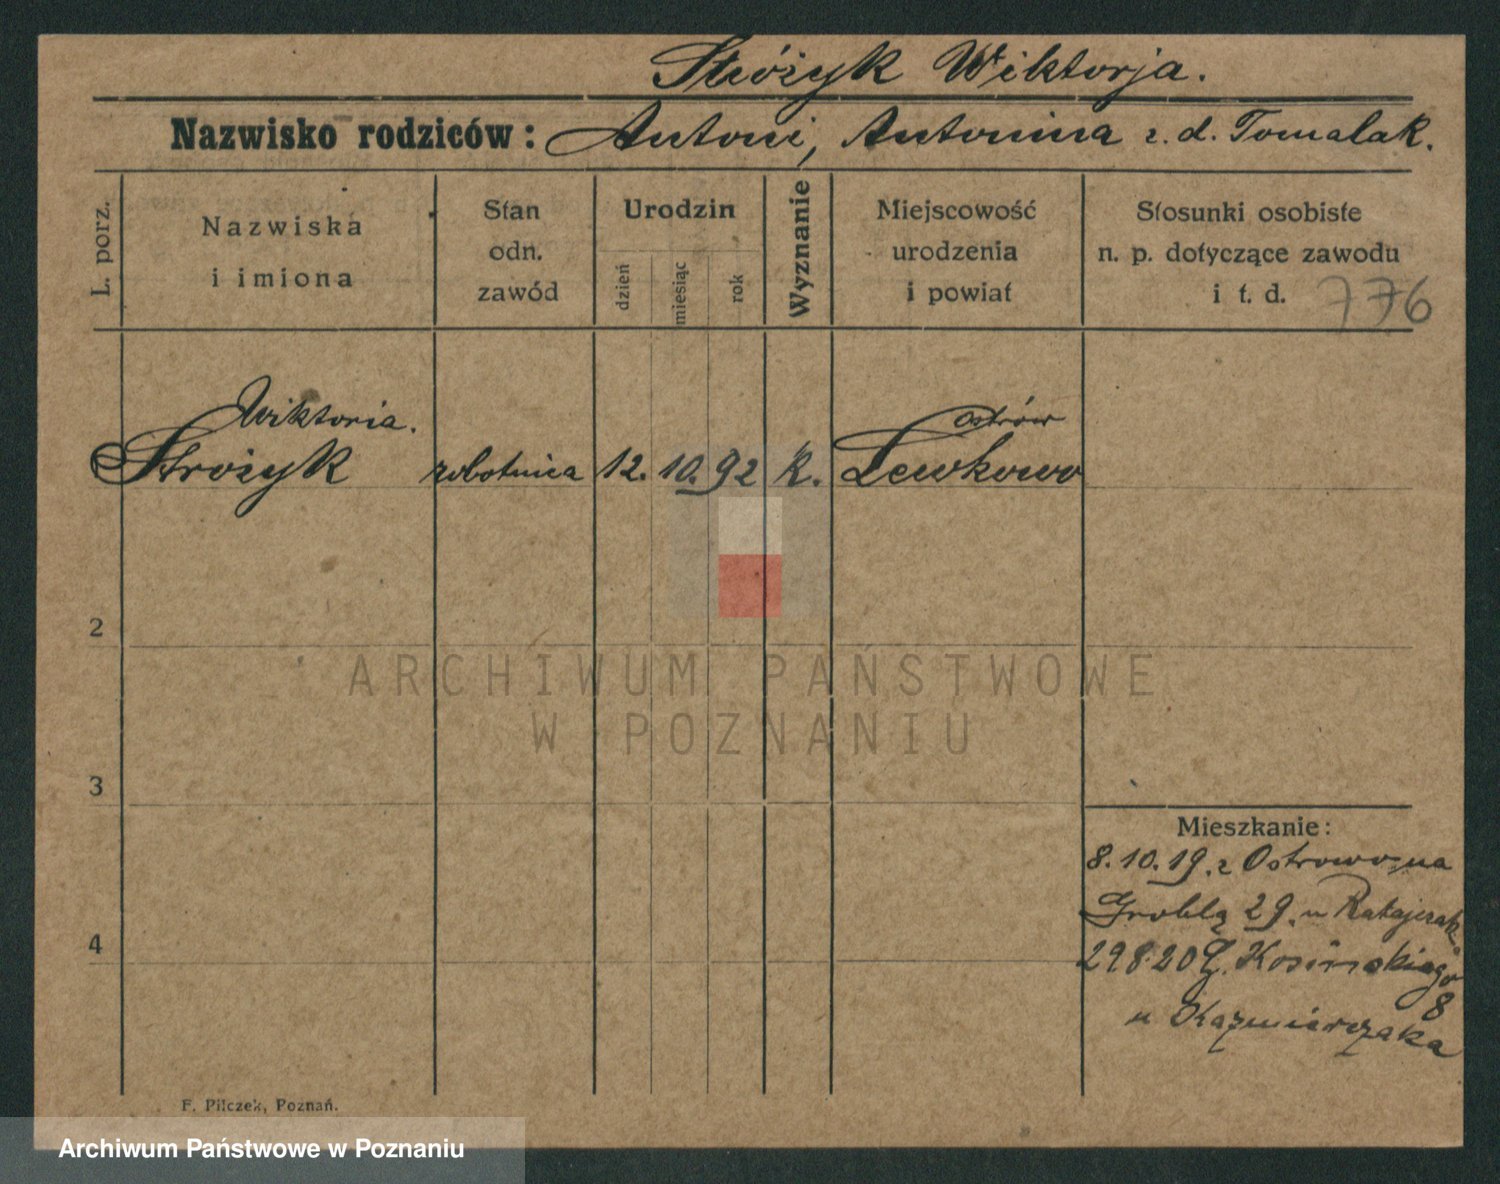 Stróżyk Wiktorja.
Nazwisko rodziców: Antoni, Antonina z. d. Tomalak.
L. porz.
Nazwiska i imiona
Stan odn. zawód
Urodzin
dzień
miesiąc
rok
Wyznanie
Miejscowość urodzenia i powiat
Stosunki osobiste n. p. dotyczące zawodu i t. d.
776
Wiktoria.
Stróżyk robotnica 12. 10. 92 k. Lewkowo
Ostrów
2
ARCHIWUM PAŃSTWOWE
W POZNANIU
3
Mieszkanie:
8.10.19. z Ostrowo na
Groblą 29. u Ratajczak.
4
29 8 20 G. Kosińskiego
8
u Kaźmierczaka
F. Pilczek, Poznań.
Archiwum Państwowe w Poznaniu